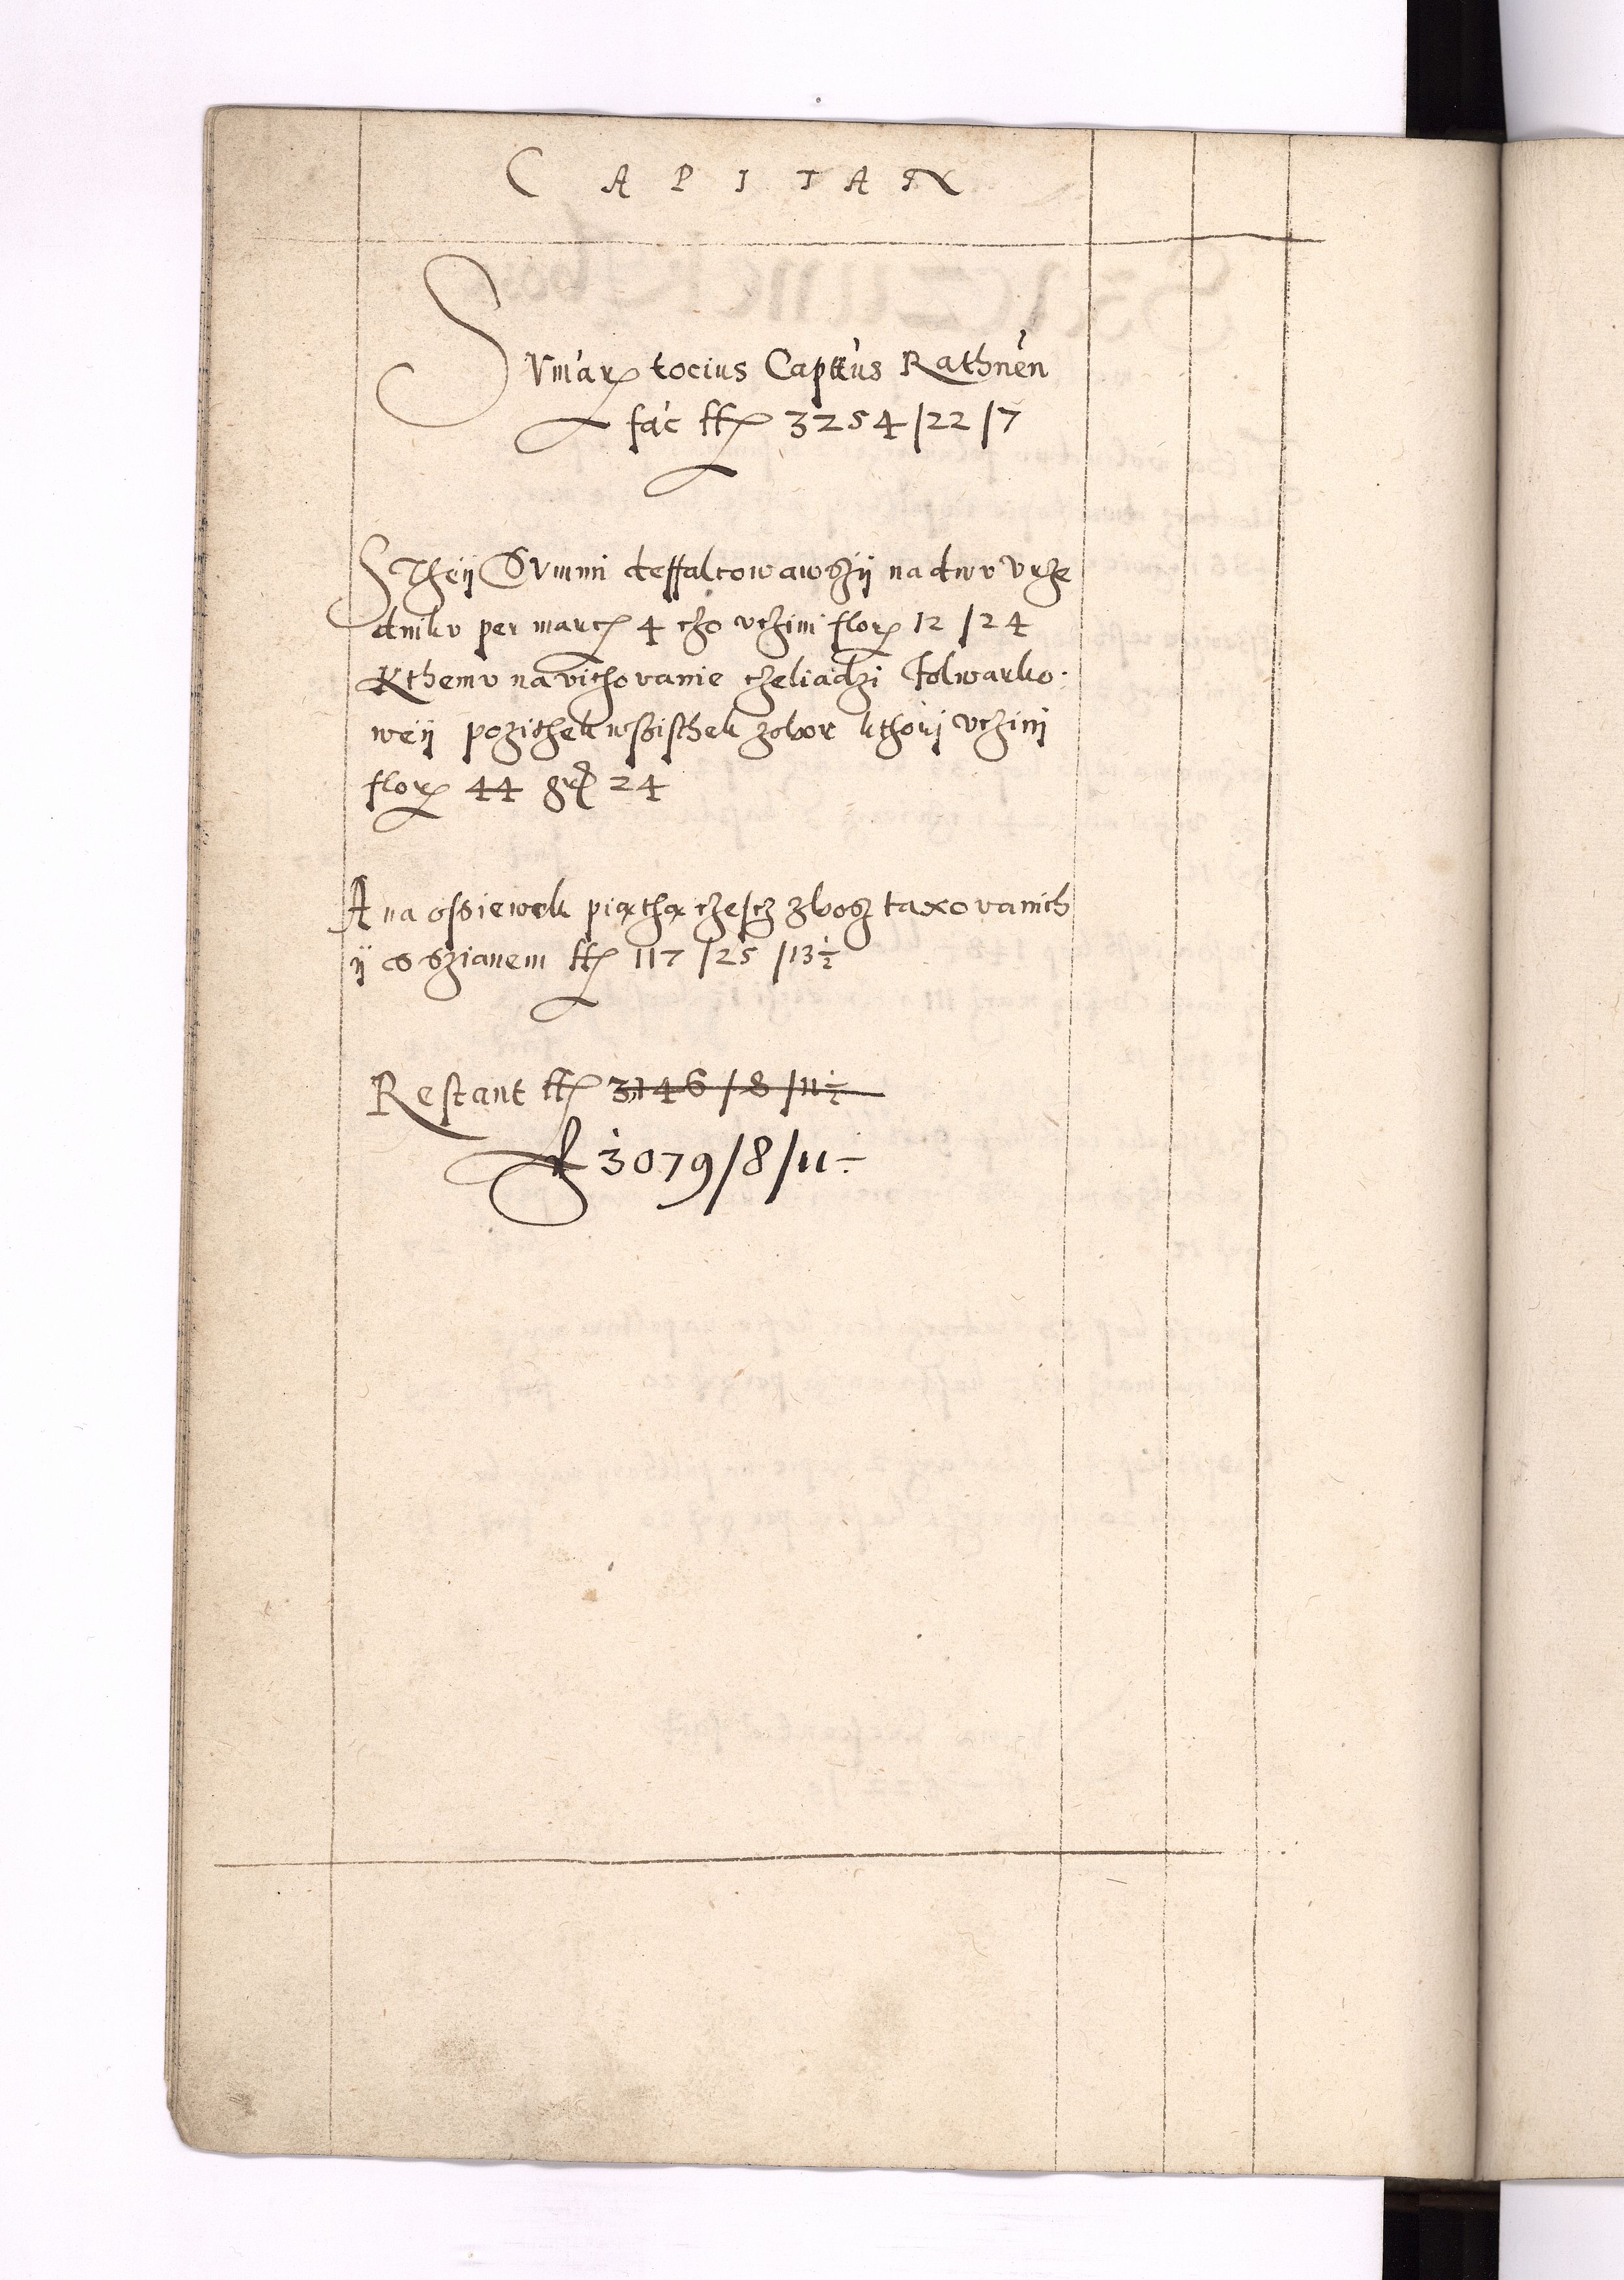 CAPITAN
Sumar tocius Captus Rathnen
fac ff 3254/22/7
S Theÿ Summi deffalcowawszÿ na dwu urze
dniku per marc 4 czo uczini flor 12/24
K themu na vichovanie czeliadzi folwarko:
weÿ pozithek wssisthek zobor kthorÿ uczini
flor 44 gr 24
A na ossiewek piątha czescz zbosz taxovanich
ÿ co szianem ff 117/25/13½
Restant ff 3146/8/11½
ff 3079/8/11÷